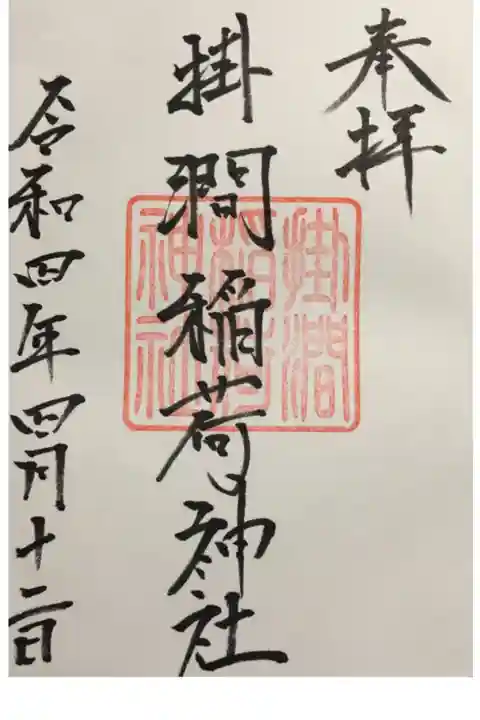 奉拝
掛澗稲荷神社
令和四年四月十二日
掛澗
稲荷
神社